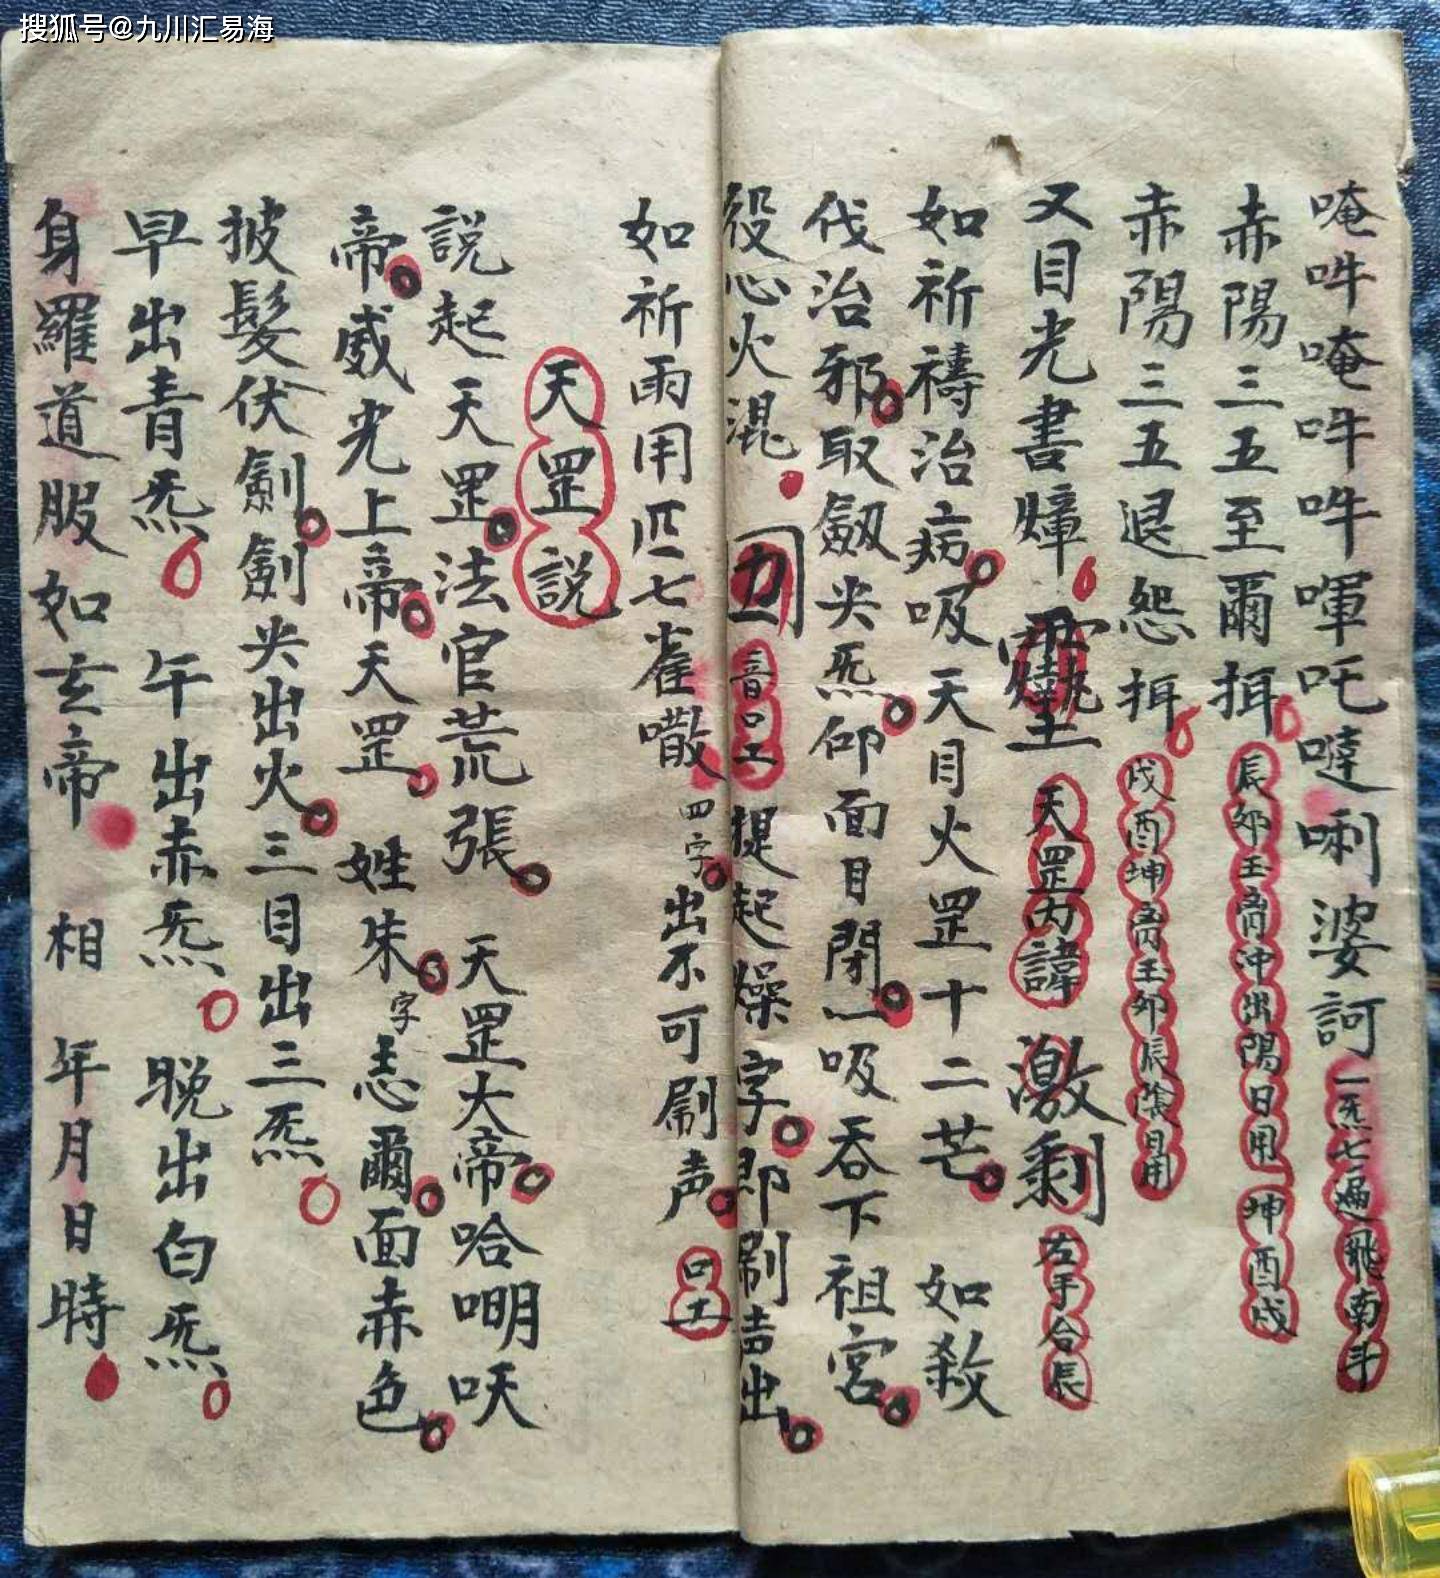 搜狐号@九川汇易海
唵吽唵吽吽啤吒噠唎婆訶一炁七遍飛南斗
赤陽三五至爾揖辰卯玉帝沖出陽日用坤酉戌
赤陽三五退怨揖戌酉坤帝玉卯辰陰日用
又目光書㷰 天罡內諱 激剩 左手合辰
如祈禱治病吸天目火罡十二芒 如殺
伐治邪取劔尖炁仰面目閉一吸吞下祖宮
役心火混 音口工 提起燥字即刷声出
如祈雨用匹七雀噉四字出不可刷声 口工
天罡説
説起天罡法官荒張 天罡大帝哈嘲呋
帝威光上帝天罡 姓朱字恚爾面赤色
披髮伏劍劍尖出火三目出三炁
早出青炁 午出赤炁 晚出白炁
身羅道服如玄帝 相 年月日時